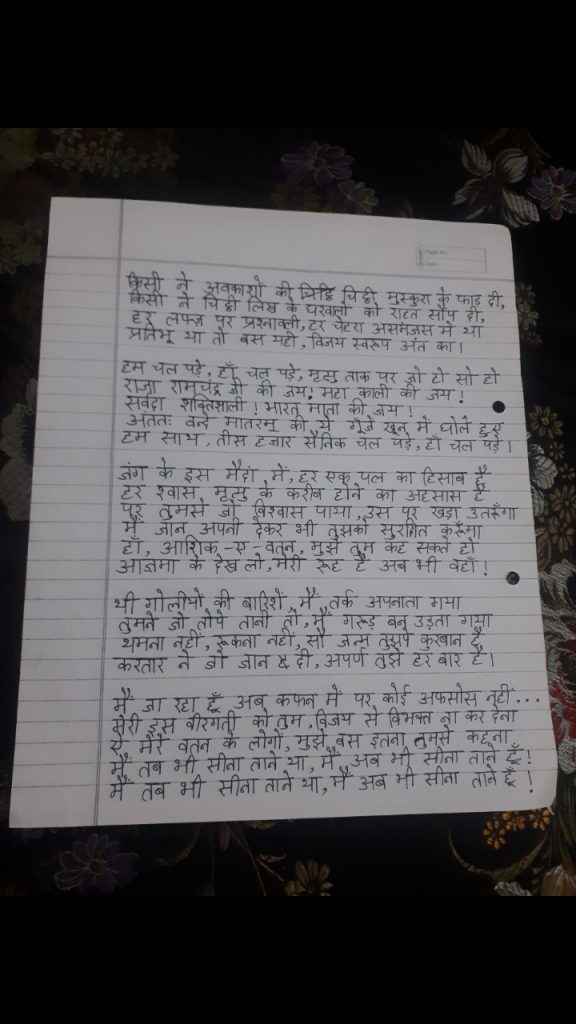 Page No.
Date
किसी ने अवकाशो की चिट्ठि चिट्ठी मुस्कुरा के फाड़ दी,
किसी ने चिट्ठी लिख के घरवालों को राहत सौंप दी,
हर लफ्ज़ पर प्रश्नावली, हर चेहरा असमंजस में था
प्रतिभू था तो बस यही, विजय स्वरूप अंत का।
हम चल पड़े, हाँ चल पड़े, मृत्यु ताक पर जो हो सो हो
राजा रामचंद्र जी की जय, महा काली की जय!
सर्वदा शक्तिशाली! भारत माता की जय!
अंततः वन्दे मातरम् की ये गूँजें खून में घोले हुए
हम साथ, तीस हज़ार सैनिक चल पड़े, हाँ चल पड़े।
जंग के इस मैदां में, हर एक पल का हिसाब है
हर श्वास, मृत्यु के करीब होने का अहसास है
पर तुमसे जो विश्वास पाया, उस पर खड़ा उतरूँगा
मैं जान अपनी देकर भी तुझको सुरक्षित करूँगा
हाँ, आशिक़-ए-वतन, मुझे तुम कह सकते हो
आज़मा के देख लो, मेरी रूह है अब भी वहाँ!
थी गोलीयों की बारिशें, मैं तर्क अपनाता गया
तुमने जो तोपें तानी तो, मैं गरुड़ बन उड़ता गया
थमना नहीं, रूकना नहीं, सौ जन्म तुझपे कुरबान है
करतार ने जो जान दी, अपर्ण तुझे हर बार है।
मैं जा रहा हूँ अब कफन में पर कोई अफसोस नहीं...
मेरी इस वीरगती को तुम, विजय से विभक्त ना कर देना
ऐ मेरे वतन के लोगों, मुझे बस इतना तुमसे कहना
मैं तब भी सीना ताने था, मैं अब भी सीना ताने हूँ!
मैं तब भी सीना ताने था, मैं अब भी सीना ताने हूँ!